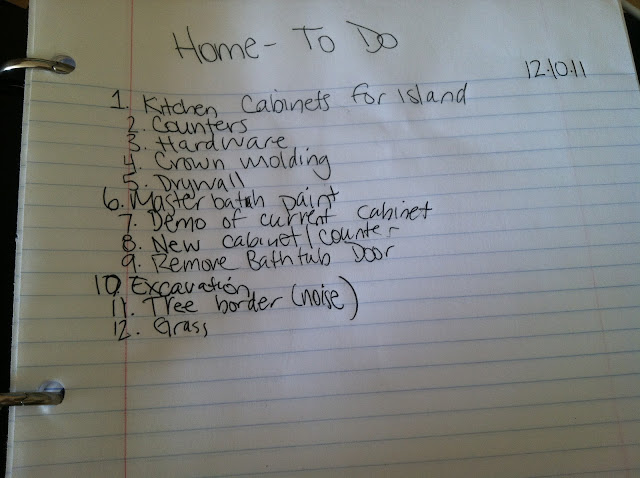 Home - To Do
12.10.11
1. Kitchen Cabinets for Island
2. Counters
3. Hardware
4. Crown molding
5. Drywall
6. Master bath paint
7. Demo of current cabinet
8. New cabinet/counter
9. Remove Bathtub Door
10. Excavation
11. Tree border (noise)
12. Grass